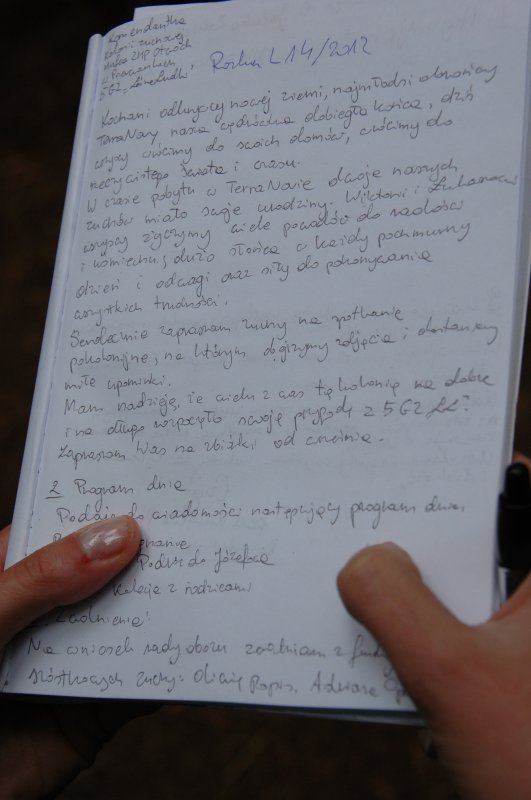 Komendantka
kolonii zuchowej
Hufca ZHP Otwock
w Pracownkach
5 GZ "Leśne Ludki"
Rozkaz L 14/2012
Kochani odkrywcy nowej ziemi, najmłodsi obrońcy
TerraNovy nasza wędrówka dobiegło końca, dziś
wszyscy wrócimy do swoich domów, wrócimy do
rzeczywistego świata i czasu.
W czasie pobytu w TerraNovie dwoje naszych
zuchów miało swoje urodziny. Wiktorii i Łukaszowi
wszyscy życzymy wiele powodów do radości
i uśmiechu, dużo słońca w każdy pochmurny
dzień i odwagi oraz siły do pokonywania
wszystkich trudności.
Serdecznie zapraszam zuchy na spotkanie
pokolonijne, na którym obejrzymy zdjęcia i dostaniemy
miłe upominki.
Mam nadzieję, że wielu z was tę kolonię na dobre
i na długo rozpoczęło swoją przygodę z 5 GZ LL.
Zapraszam Was na zbiórki od września.
2 Program dnia
Podaję do wiadomości następujący program dnia.
Podróż do Józefowa
kolacja z rodzicami
Zwolnienia:
Na wniosek rady obozu zwalniam z
szóstkowych zuchy: Oliwię Rapis, Adriana